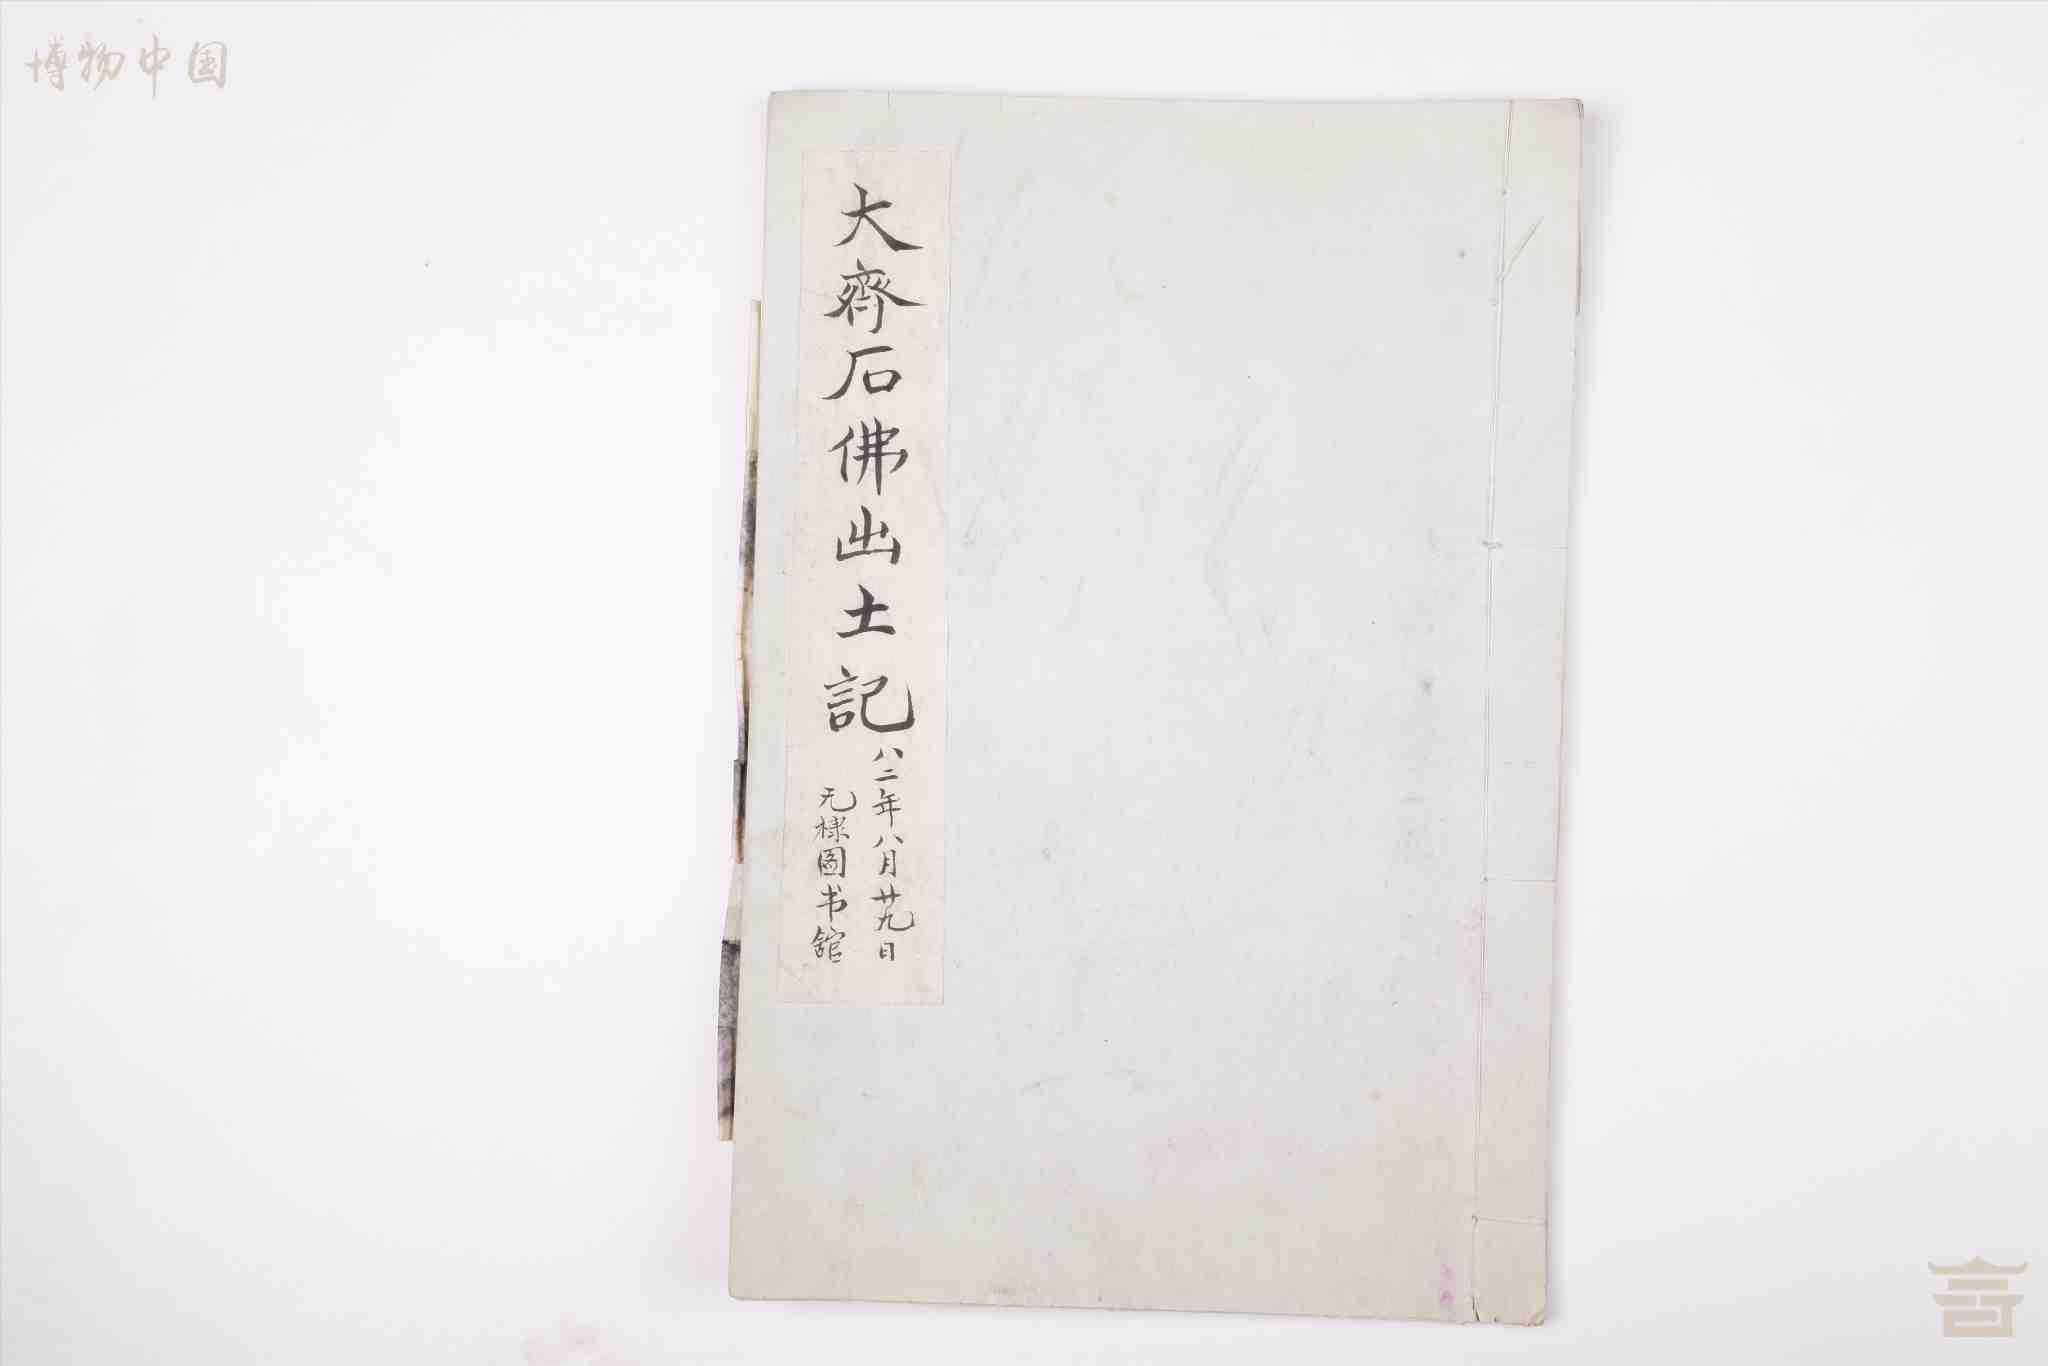 博物中国
大齊石佛出土記
八二年八月廿九日
无棣圖书舘